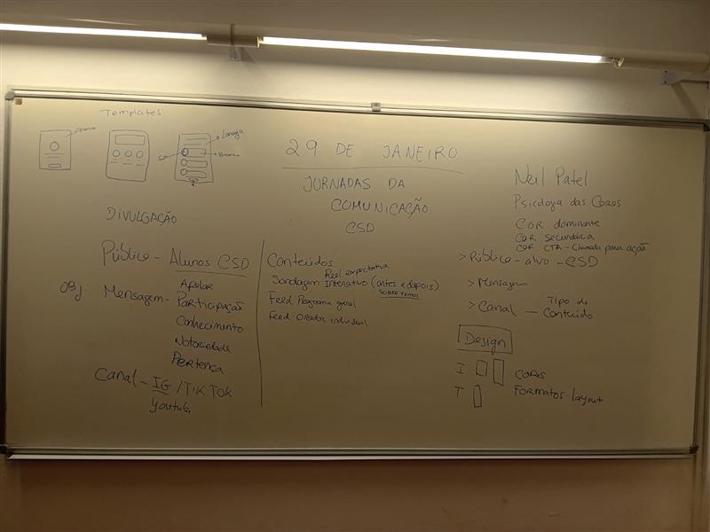 Templates
29 DE JANEIRO
JORNADAS DA
COMUNICAÇÃO
CSD
DIVULGAÇÃO
Público - Alunos CSD
Obj Mensagem - Apelar
Participação
Conhecimento
Notoriedade
Pertença
Canal - IG / TIK TOK
Youtub.
Conteúdos
Reel expectativa
Sondagem Interativo (antes e depois)
Sobre temas
Feed Programa geral
Feed Orador individual
Neil Patel
Psicologia das Cores
COR dominante
COR secundária
COR CTA - Chamada para ação
> Público - alvo - CSD
> Mensagem
> Canal - Tipo de
Conteúdo
Design
I
T
CORES
Formatos layout